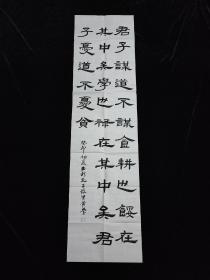 君子謀道不謀食耕也餒在
其中矣學也祿在其中矣君
子憂道不憂貧